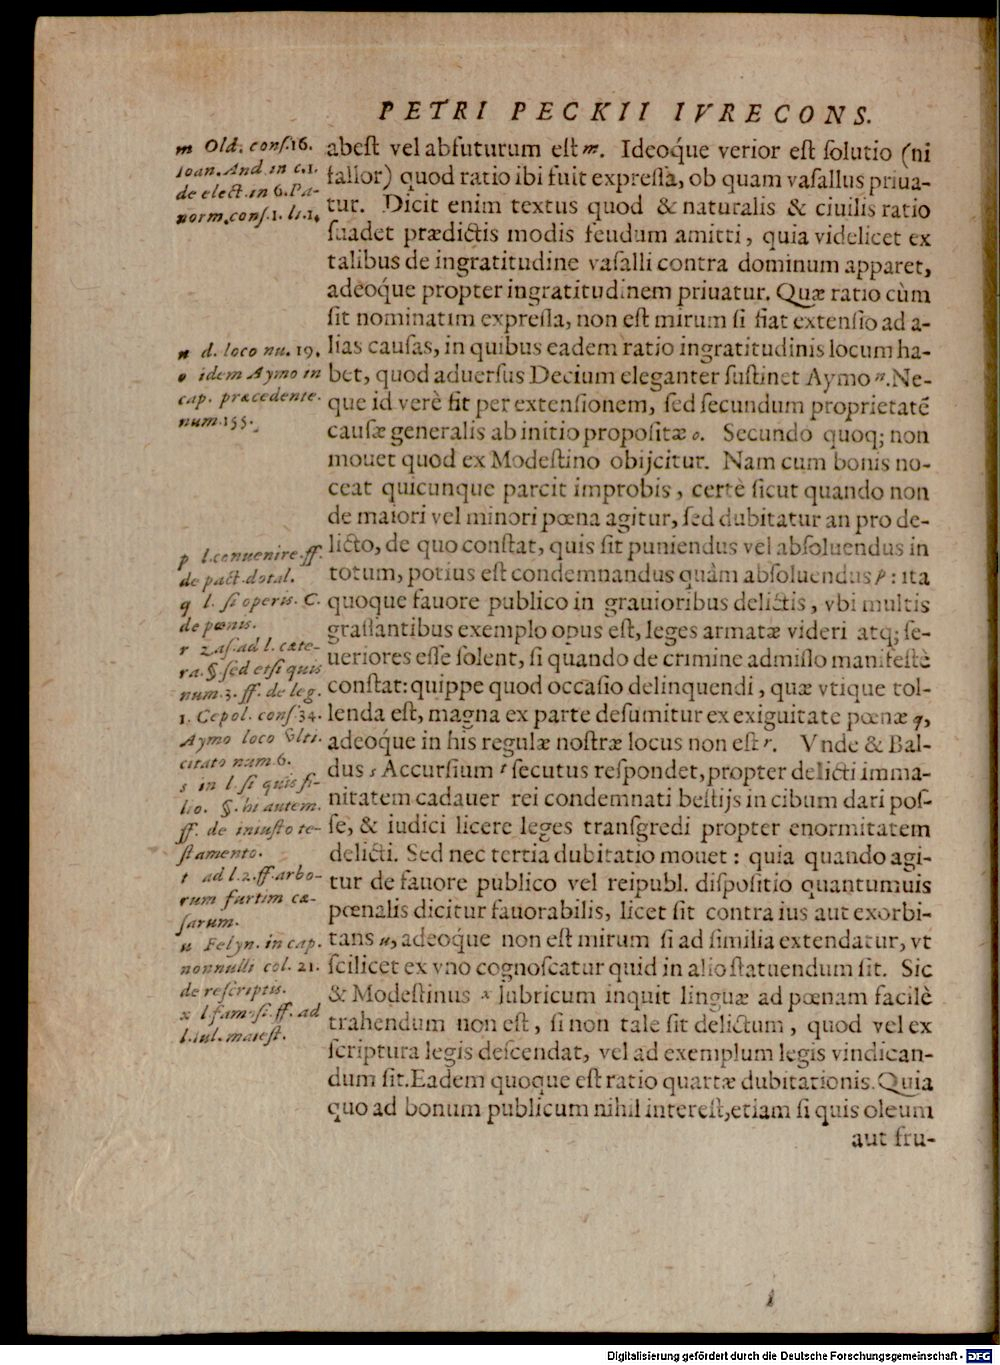 PETRI PECKII IVRECONS.
m Old. conſ.16.
Ioan. And in c.1.
de elect. in 6. Pa-
norm. conſ.1. li.1.
abeſt vel abfuturum eſt m. Ideoq́ue verior eſt ſolutio (ni
fallor) quod ratio ibi fuit expreſſa, ob quam vaſallus priua-
tur. Dicit enim textus quod & naturalis & ciuilis ratio
ſuadet prædictis modis feudum amitti, quia videlicet ex
talibus de ingratitudine vaſalli contra dominum apparet,
adeoq́ue propter ingratitudinem priuatur. Quæ ratio cùm
ſit nominatim expreſſa, non eſt mirum ſi fiat extenſio ad a-
lias cauſas, in quibus eadem ratio ingratitudinis locum ha-
bet, quod aduerſus Decium eleganter ſuſtinet Aymo n. Ne-
que id verè fit per extenſionem, ſed ſecundum proprietatē
cauſæ generalis ab initio propoſitæ o. Secundo quoq; non
mouet quod ex Modeſtino obijcitur. Nam cum bonis no-
ceat quicunque parcit improbis, certè ſicut quando non
de maiori vel minori pœna agitur, ſed dubitatur an pro de-
licto, de quo conſtat, quis ſit puniendus vel abſoluendus in
totum, potius eſt condemnandus quàm abſoluendus p : ita
quoque fauore publico in grauioribus delictis, vbi multis
graſſantibus exemplo opus eſt, leges armatæ videri atq; ſe-
ueriores eſſe ſolent, ſi quando de crimine admiſſo manifeſtè
conſtat: quippe quod occaſio delinquendi, quæ vtique tol-
lenda eſt, magna ex parte deſumitur ex exiguitate pœnæ q,
adeoq́ue in his regulæ noſtræ locus non eſt r. Vnde & Bal-
dus s Accurſium t ſecutus reſpondet, propter delicti imma-
nitatem cadauer rei condemnati beſtijs in cibum dari poſ-
ſe, & iudici licere leges tranſgredi propter enormitatem
delicti. Sed nec tertia dubitatio mouet : quia quando agi-
tur de fauore publico vel reipubl. diſpoſitio quantumuis
pœnalis dicitur fauorabilis, licet ſit contra ius aut exorbi-
tans u, adeoq́ue non eſt mirum ſi ad ſimilia extendatur, vt
ſcilicet ex vno cognoſcatur quid in alio ſtatuendum ſit. Sic
& Modeſtinus x lubricum inquit linguæ ad pœnam facilè
trahendum non eſt, ſi non tale ſit delictum, quod vel ex
ſcriptura legis deſcendat, vel ad exemplum legis vindican-
dum ſit. Eadem quoque eſt ratio quartæ dubitationis. Quia
quo ad bonum publicum nihil intereſt, etiam ſi quis oleum
aut fru-
n d. loco nu. 19.
o idem Aymo in
cap. præcedente.
num.155.
p l.conuenire.ff.
de pact. dotal.
q l. ſi operis. C.
de pœnis.
r Zaſ. ad l. cæte-
ra. §. ſed etſi quis
num. 3. ff. de leg.
1. Cepol. conſ.34.
Aymo loco vlti.
citato num. 6.
s in l. ſi quis fi-
lio. §. hi autem.
ff. de iniuſto te-
ſtamento.
t ad l.2.ff. arbo-
rum furtim cæ-
ſarum.
u Felyn. in cap.
nonnulli col. 21.
de reſcriptis.
x l famoſi. ff. ad
l. iul. maieſt.
Digitalisierung gefördert durch die Deutsche Forschungsgemeinschaft - DFG